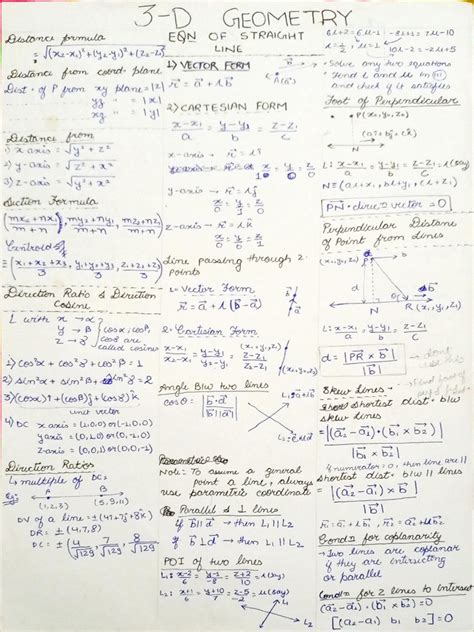 3-D GEOMETRY
Distance formula
= √(x₂-x₁)²+(y₂-y₁)²+(z₂-z₁)²
Distance from coord. plane
Dist. of P from xy plane = |z|
yz " = |x|
xz " = |y|
Distance from
1) x axis = √y²+z²
2) y-axis = √z²+x²
3) z-axis = √x²+y²
Section Formula
(mx₂+nx₁/m+n, my₂+ny₁/m+n, mz₂+nz₁/m+n)
Centroid
= (x₁+x₂+x₃/3, y₁+y₂+y₃/3, z₁+z₂+z₃/3)
Direction Ratio & Direction
Cosine
L with x → α
y → β
z → γ
cosα, cosβ,
cosγ are
called cosines
1) cos²α + cos²β + cos²γ = 1
2) sin²α + sin²β + sin²γ = 2
3) (cosα)î+(cosβ)ĵ+(cosγ)k̂
unit vector
4) DC x axis = (1,0,0) or (-1,0,0)
y axis = (0,1,0) or (0,-1,0)
z axis = (0,0,1) or (0,0,-1)
Direction Ratios
↳ multiple of DCs
Ex:
A B
(1,2,3) (5,9,11)
DV of a line = ±(4î+7ĵ+8k̂)
DR = ±(4,7,8)
DC = ±(4/√129, 7/√129, 8/√129)
EQN OF STRAIGHT
LINE
1) VECTOR FORM
r = a + λb
A(a)
2) CARTESIAN FORM
x-x₁/a = y-y₁/b = z-z₁/c
x-axis → r = λî
x/1 = y/0 = z/0
y-axis → r = λĵ
x/0 = y/1 = z/0
z-axis → r = λk̂
x/0 = y/0 = z/1
Line passing through 2
points
1- Vector Form
r = a + λ(b-a)
2- Cartesian Form
x-x₁/x₂-x₁ = y-y₁/y₂-y₁ = z-z₁/z₂-z₁
Angle b/w two lines
cosθ = |b·d / |b||d||
Note: To assume a general
point a line, always
use parametric coordinate
Parallel & ⊥ lines
if b||d → then L₁ || L₂
if b⊥d → then L₁ ⊥ L₂
POI of two lines
L₁: x-2/6 = y-1/-8 = z+2/10 = μ(say)
6λ+2=6μ-1 -8λ+1=7μ-10
10λ-2=-2μ+5
• Solve any two equations
• Find λ and μ in
and check if it satisfies
Foot of Perpendicular
P(x₂,y₂,z₂)
(aî+bĵ+ck̂)
N
L: x-x₁/a = y-y₁/b = z-z₁/c = λ(say)
N ≡ (aλ+x₁, bλ+y₁, cλ+z₁)
PN · dirⁿ vector = 0
Perpendicular Distane
of Point from Lines
P
d
N
L: x-x₁/a = y-y₁/b = z-z₁/c
d = |PR × b| / |b|
Skew Lines →
Shortest dist. b/w
skew lines
= |(a₂-a₁)·(b₁×b₂)| / |b₁×b₂|
if numerator = 0, then line are ||
Shortest dist - b/w || lines
= |(a₂-a₁)×b| / |b|
Condⁿ for coplanarity
→ Two lines are coplanar
if they are intersecting
or parallel
Condⁿ for 2 lines to intersect
(a₂-a₁)·(b₁×b₂) = 0